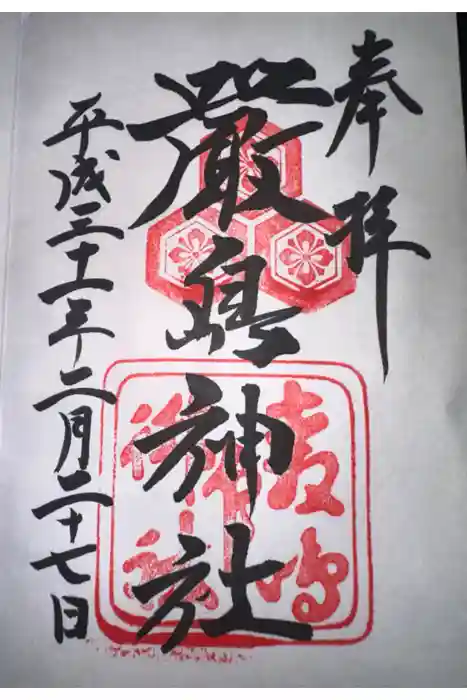 奉拝
嚴島神社
平成三十一年二月二十七日